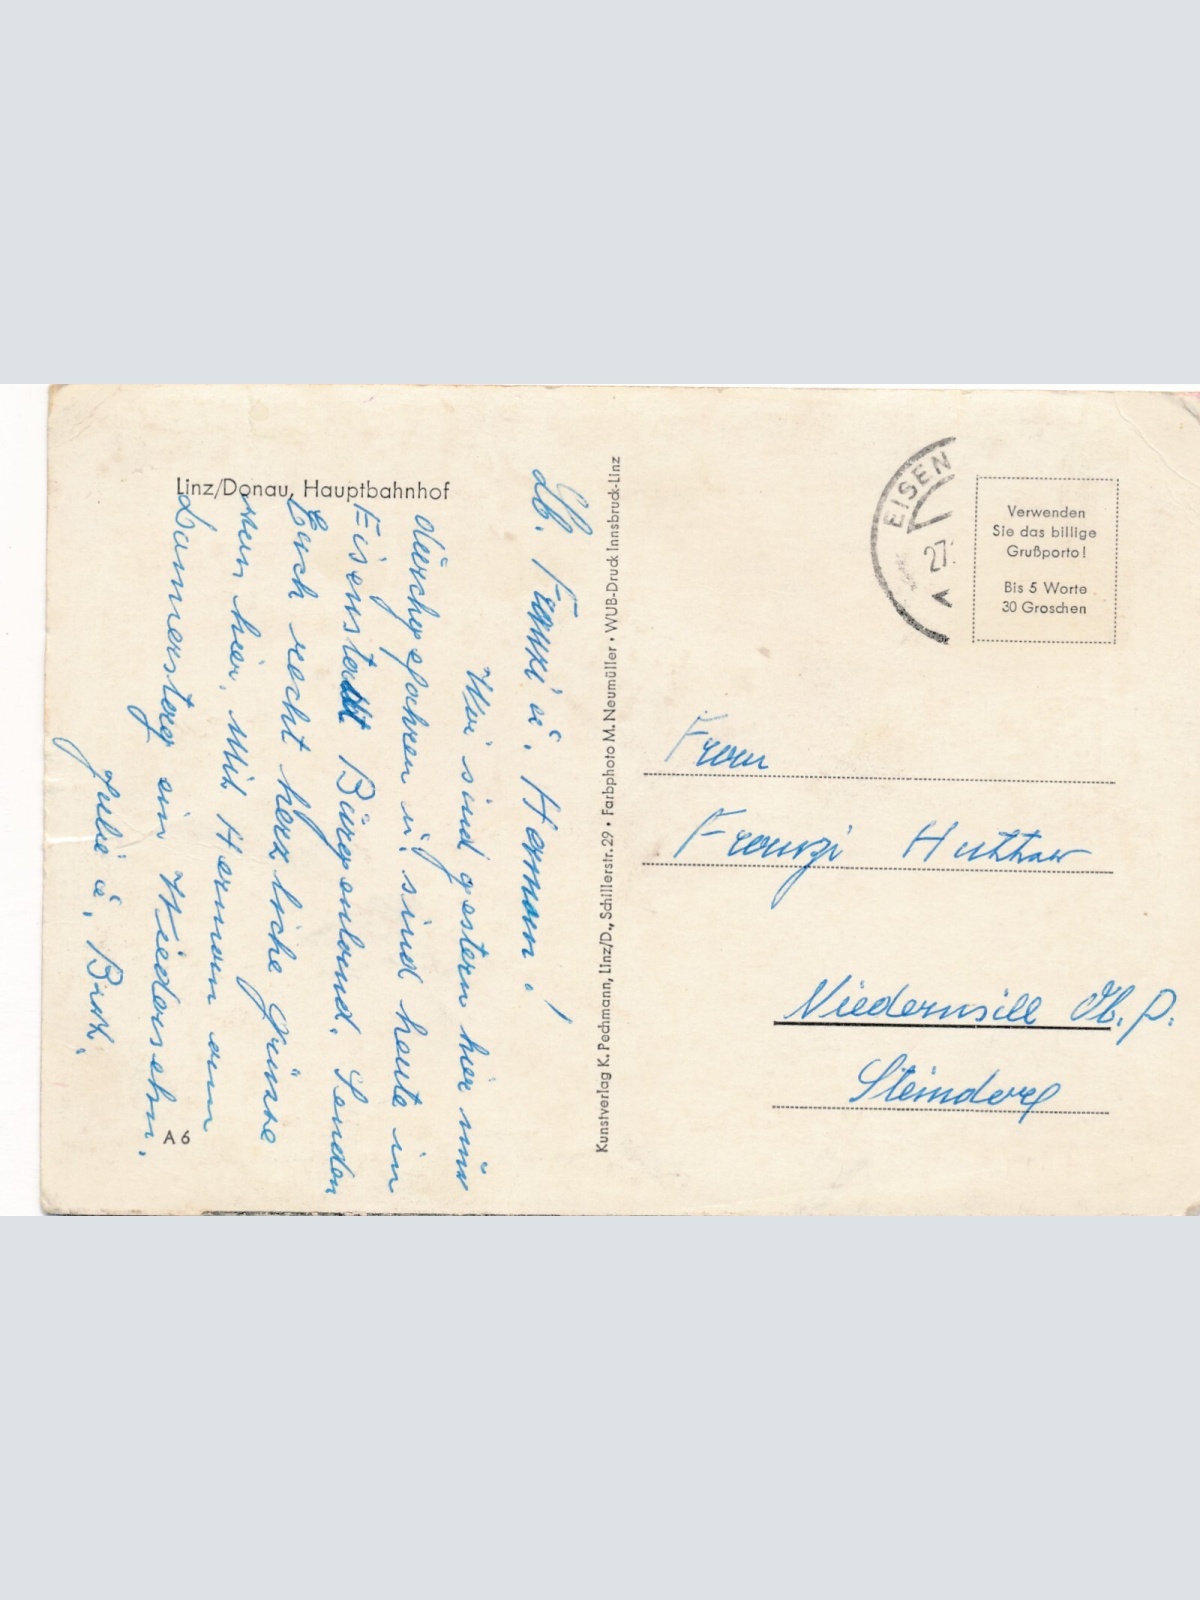 Linz/Donau, Hauptbahnhof
Lb. Franzi u. Herman!
Wir sind gestern hier nur
durchgefahren u. sind heute in
Eisenstadt Burgenland. Senden
Euch recht herzliche Grüsse
von hier. Mit Herman am
Donnerstag ein Wiedersehn.
Julie u.
A 6
Kunstverlag K. Pechmann, Linz/D., Schillerstr. 29 • Farbphoto M. Neumüller • WUB-Druck Innsbruck-Linz
EISEN
27.
Verwenden
Sie das billige
Grußporto!
Bis 5 Worte
30 Groschen
Frau
Franzi Huttar
Niedernsill Ob. P.
Steindorf